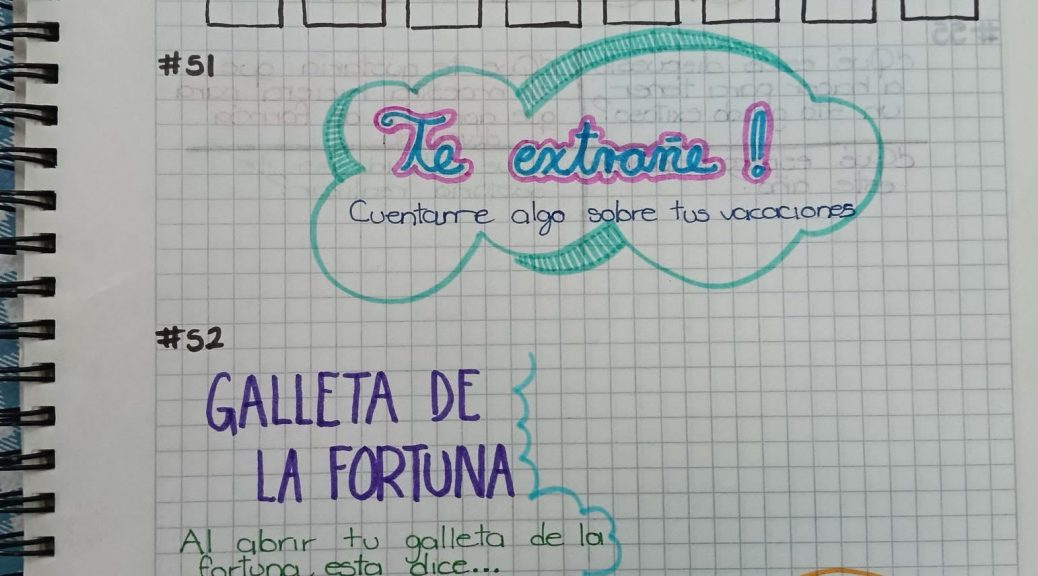 #51
Te extrañe!
Cuentame algo sobre tus vacaciones
#52
GALLETA DE
LA FORTUNA
Al abrir tu galleta de la
fortuna, esta dice...